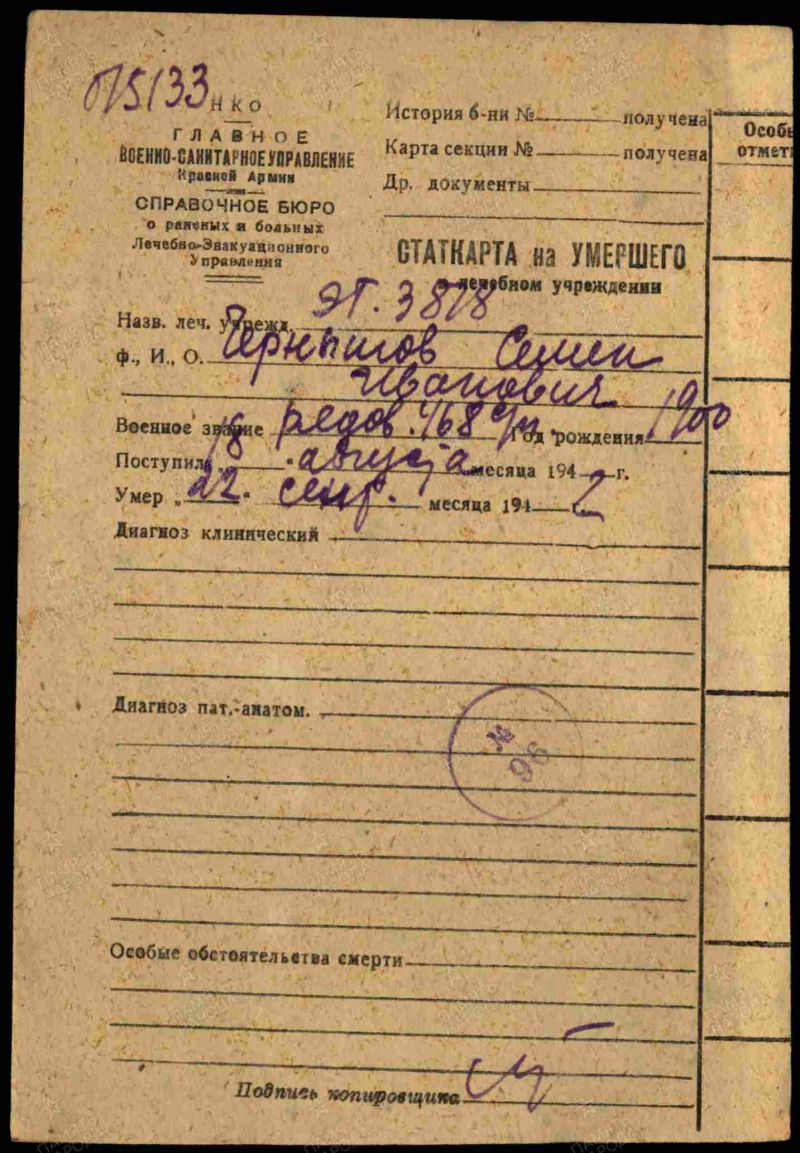 015133
НКО
ГЛАВНОЕ
ВОЕННО-САНИТАРНОЕ УПРАВЛЕНИЕ
Красной Армии
СПРАВОЧНОЕ БЮРО
о раненых и больных
Лечебно-Эвакуационного
Управления
История б-ни № получена
Карта секции № получена
Др. документы
Особ
отмет
СТАТКАРТА на УМЕРШЕГО
в лечебном учреждении
Назв. леч. учрежд. ЭГ. 3818
ф., И., О. Семен
Иванович
Военное звание рядов. 468 с/п. Год рождения 1900
Поступил „18" августа месяца 194 г.
Умер „22" сент. месяца 194 2
Диагноз клинический
Диагноз пат.-анатом.
№
98
Особые обстоятельства смерти
Подпись копировщика